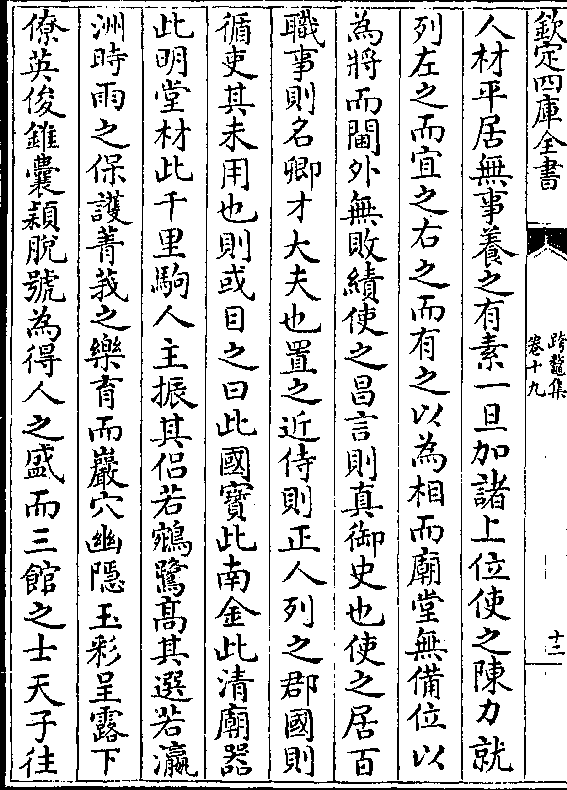 欽定四庫全書
跨鼇集
卷十九
十三
人材平居無事養之有素一旦加諸上位使之陳力就
列左之而宜之右之而有之以為相而廟堂無備位以
為將而閫外無敗績使之昌言則真御史也使之居百
職事則名卿才大夫也置之近侍則正人列之郡國則
循吏其未用也則或目之曰此國寶此南金此清廟器
此明堂材此千里駒人主振其侣若鵷鷺髙其選若瀛
洲時雨之保護菁莪之樂育而巖穴幽隱玉彩呈露下
僚英俊錐囊穎脫號為得人之盛而三館之士天子往